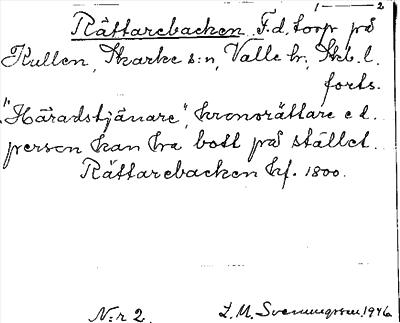 1 — 2
Rättarebacken F.d. torp på
Kullen, Skarke s:n, Valle hr, Skb.l.
forts.
"Häradstjänare", kronorättare e d.
person kan ha bott på stället.
Rättarebacken hf. 1800.
N:r 2. L. M. Svenungsson. 1946